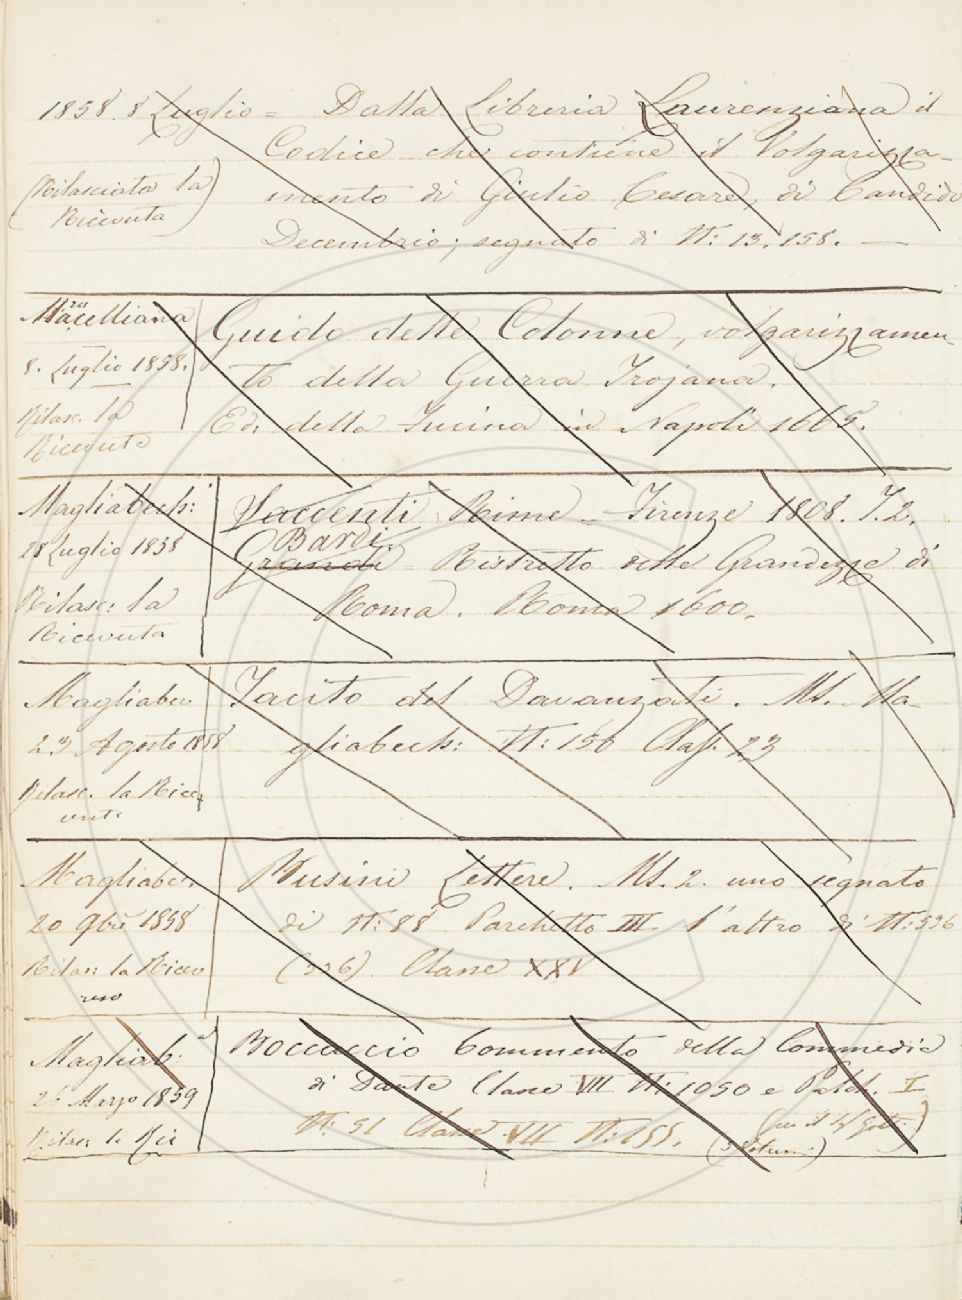 1858. 8 Luglio = Dalla Libreria Laurenziana il
Codice che contiene il Volgarizza-
(Rilasciata la mento di Giulio Cesare, di Candido
Ricevuta) Decembrio; segnato di N: 13. 158. —
Guido delle Colonne, volgarizzamen-
8. Luglio 1858. to della Guerra Trojana.
Rilasc. la Ed: della Fucina in Napoli 1665.
Ricevuta
Magliabech: Saccenti Rime – Firenze 1808. T. 2.
28 Luglio 1858 Bardi
Grandi Ristretto delle Grandezze di
Rilasc: la Roma. Roma 1600.
Ricevuta
Magliabec. Tacito del Davanzati. Ms. Ma-
23 Agosto 1858 gliabech: N: 156 Class: 23
Rilasc. la Rice-
vuta
Magliabec. Busini Lettere. Ms. 2. uno segnato
20 9bre 1858 di N: 88 Palchetto III l'altro di N: 536
Rilas: la Ricev (536) Classe XXV
Magliab: Boccaccio Commento della Commedia
26 Marzo 1859 di Dante Classe VII N: 1050 e Palch. I
Rilas: la Ric N: 51 Classe VII N: